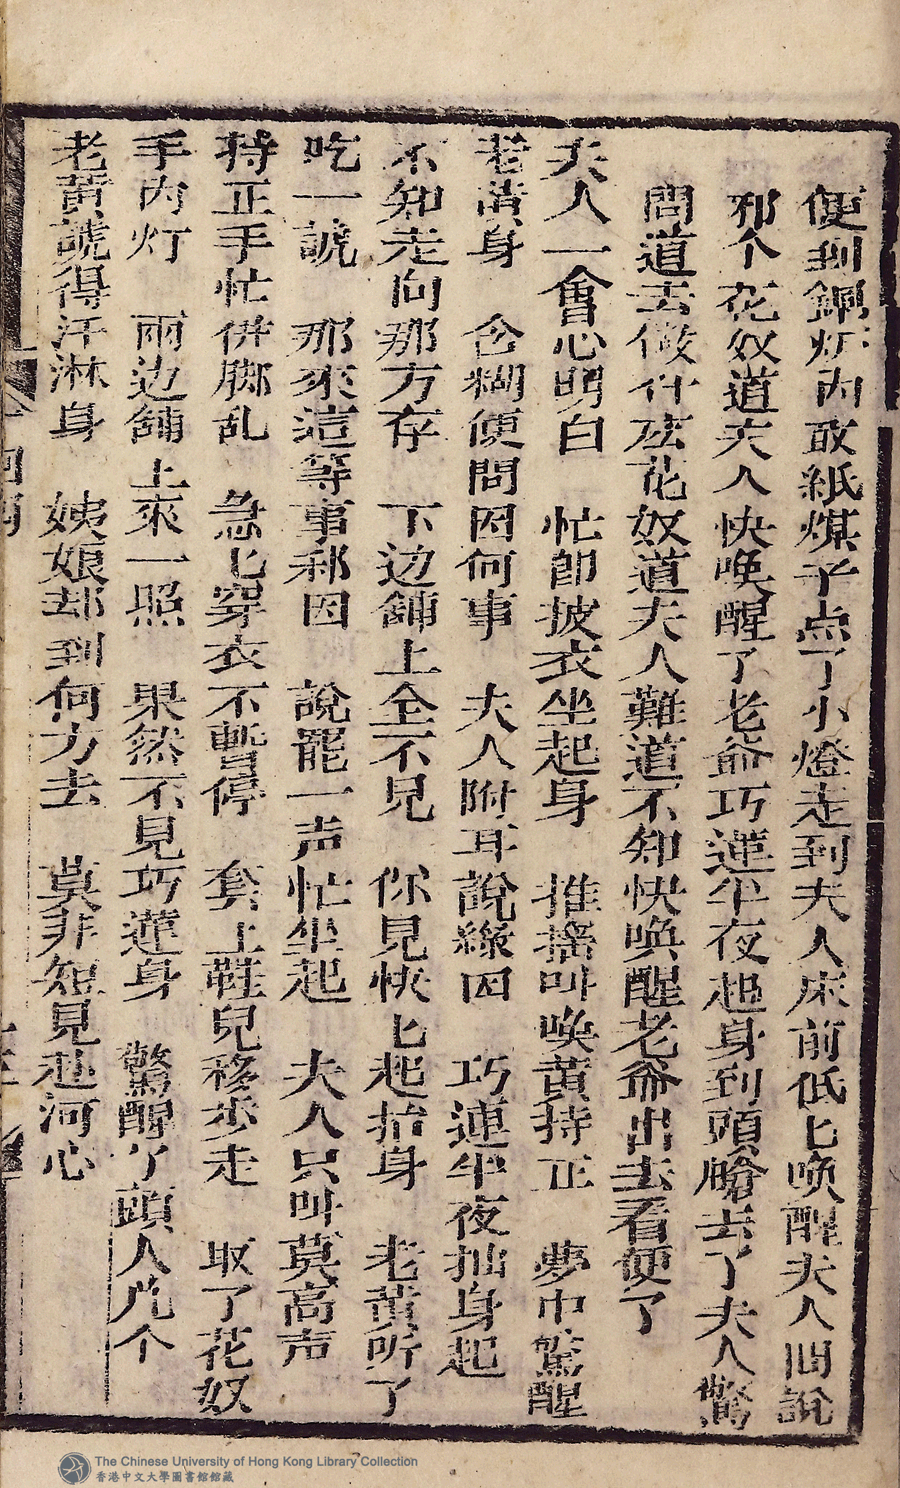 便到鋼炉内敢紙煤子点了小燈走到夫人床前低匕喚醒夫人問說
那个花奴道夫人快喚醒了老爺巧蓮半夜起身到頭艙去了夫人驚
問道去做什広花奴道夫人難道不知快喚醒老爺出去看便了
夫人一會心明白 忙即披衣坐起身 推搖叫喚黄持正 夢中驚醒
老黄身 含糊便問因何事 夫人附耳說緣因 巧連半夜抽身起
不知走向那方存 下边舖上全不見 你見快匕起抬身 老黄听了
吃一諕 那來這等事希因 說罷一声忙坐起 夫人只叫莫高声
持正手忙併脚乱 急匕穿衣不暫停 套上鞋兒移步走 取了花奴
手内灯 兩边舖上來一照 果然不見巧蓮身 驚醒了頭人几个
老黄諕得汗淋身 姨娘却到何方去 莫非短見赴河心
The Chinese University of Hong Kong Library Collection
香港中文大學圖書館館藏